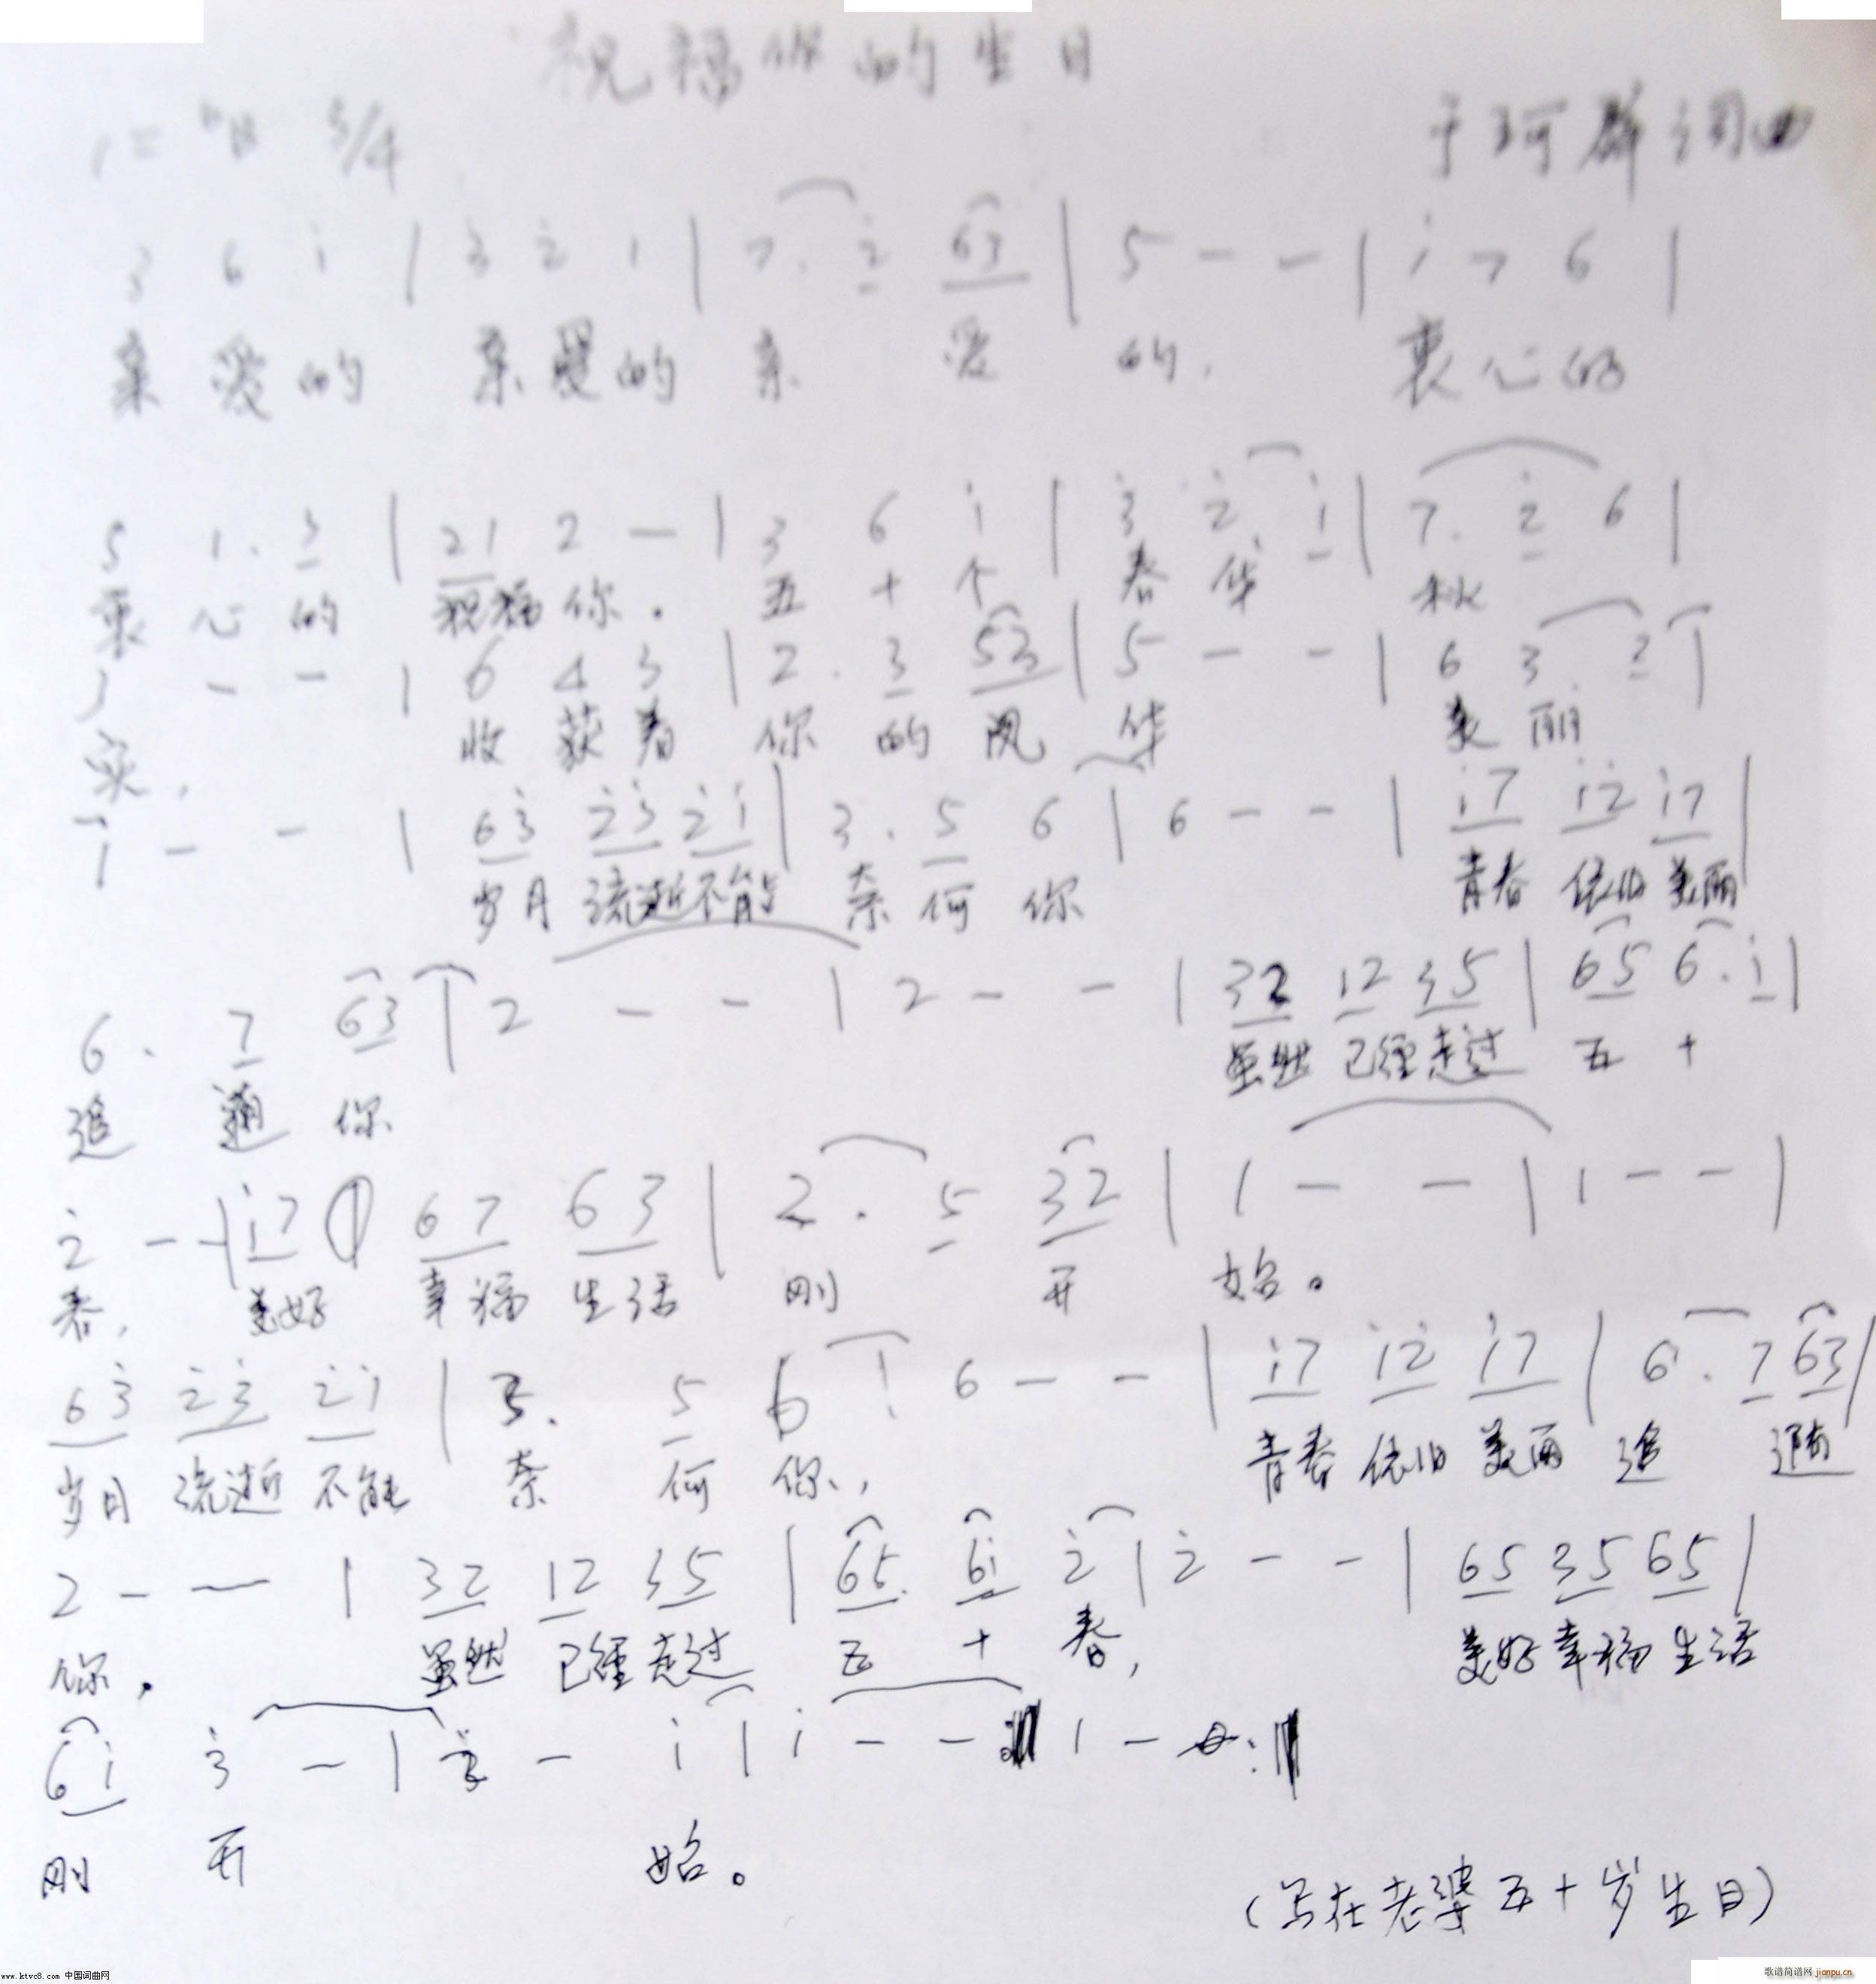 祝福你的生日
1=ᵇB 3/4 于珂群词曲
3 6 i | 3̇ 2̇ 1 | 7. 2̇ 63 | 5 - - | i 7 6 |
亲爱的 亲爱的 亲 爱 的, 衷心的
5 1. 3 | 21 2 - | 3 6 i | 3̇ 2̇. i | 7. 2̇ 6 |
衷心的 祝福你。 五十个 春华 秋
3 - - | 6 4 3 | 2. 3 53 | 5 - - | 6 3. 2 |
实, 收获着 你的风华 美丽
1 - - | 63̇ 2̇3̇ 2̇i | 3. 5 6 | 6 - - | i7 i2̇ i7 |
岁月 流逝不能 奈何你 青春 依旧 美丽
6. 7 63 | 2 - - | 2 - - | 32 12 35 | 65 6. i |
追逝你 虽然 已经走过 五 十
2̇ - - | i7 67 63 | 2. 5 32 | 1 - - | 1 - - |
春, 美好 幸福 生活 刚 开 始。
63̇ 2̇3̇ 2̇i | 3. 5 6 | 6 - - | i7 i2̇ i7 | 6. 7 63 |
岁月 流逝 不能 奈 何 你, 青春 依旧 美丽 追
2 - - | 32 12 35 | 65. 6i 2̇ | 2̇ - - | 65 35 65 |
你, 虽然 已经走过 五 十 春, 美好幸福 生活
6i 3̇ - | 2̇ - i | i - - 1 - :
刚 开 始。
(写在老婆五十岁生日)
www.ktvc8.com 中国词曲网
歌谱简谱网 jianpu.cn